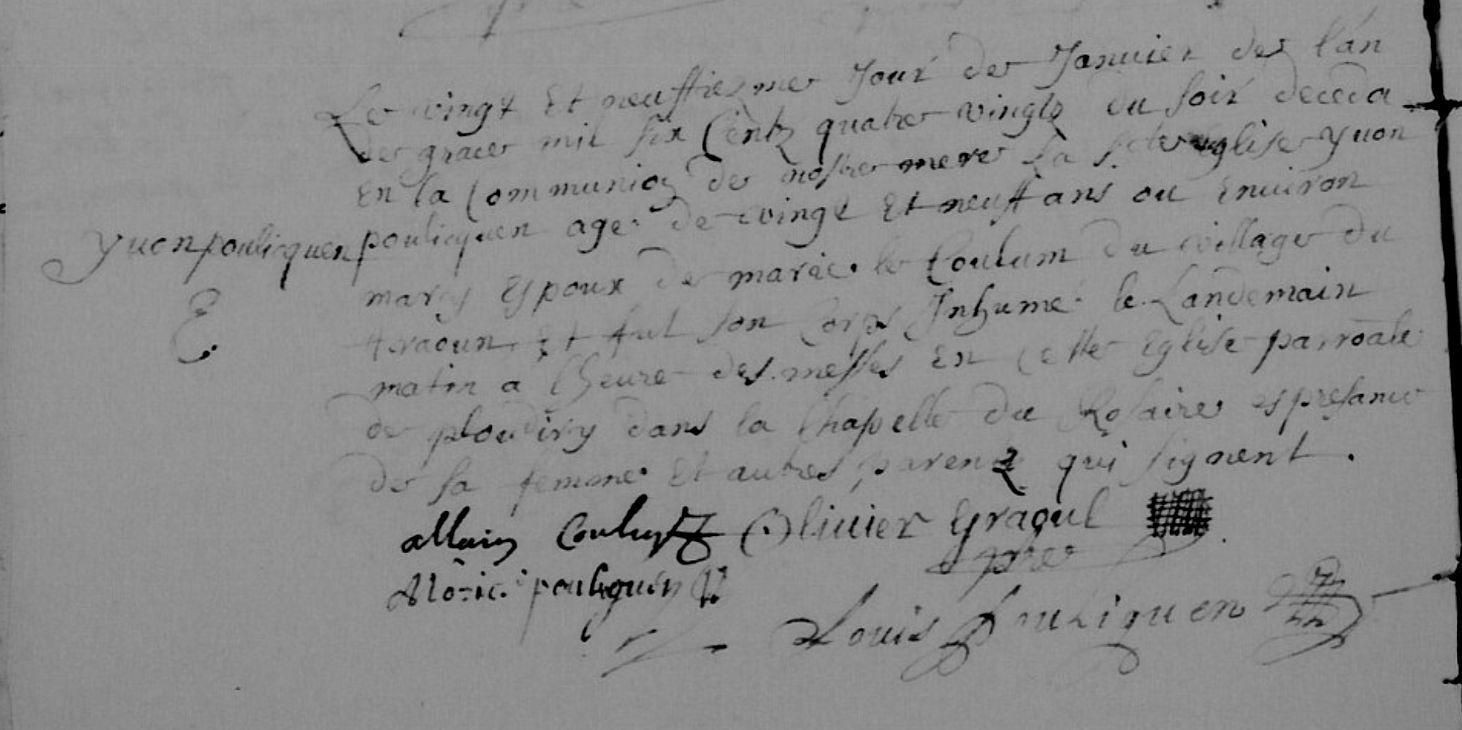 Le vingt Et neuffiesme Jour de Janvier de l'an
de grace mil six Centz quatre vingts du soir deceda
En la Communion de nostre mere la ste eglise yuon
yuon poulicquen
poulicquen age de vingt Et neuff ans ou Environ
mary Espoux de marie le Coulum du village du
traoun Et fut son Corps Inhumé le Landemain
matin a lheure des messes En Cette Eglise parroale
de ploudiry dans la Chapelle du Rosaire es presance
de sa femme Et autres parentz qui signent.
allain Olivier Graoul
pbre
pouliquen
Louis Pouliquen